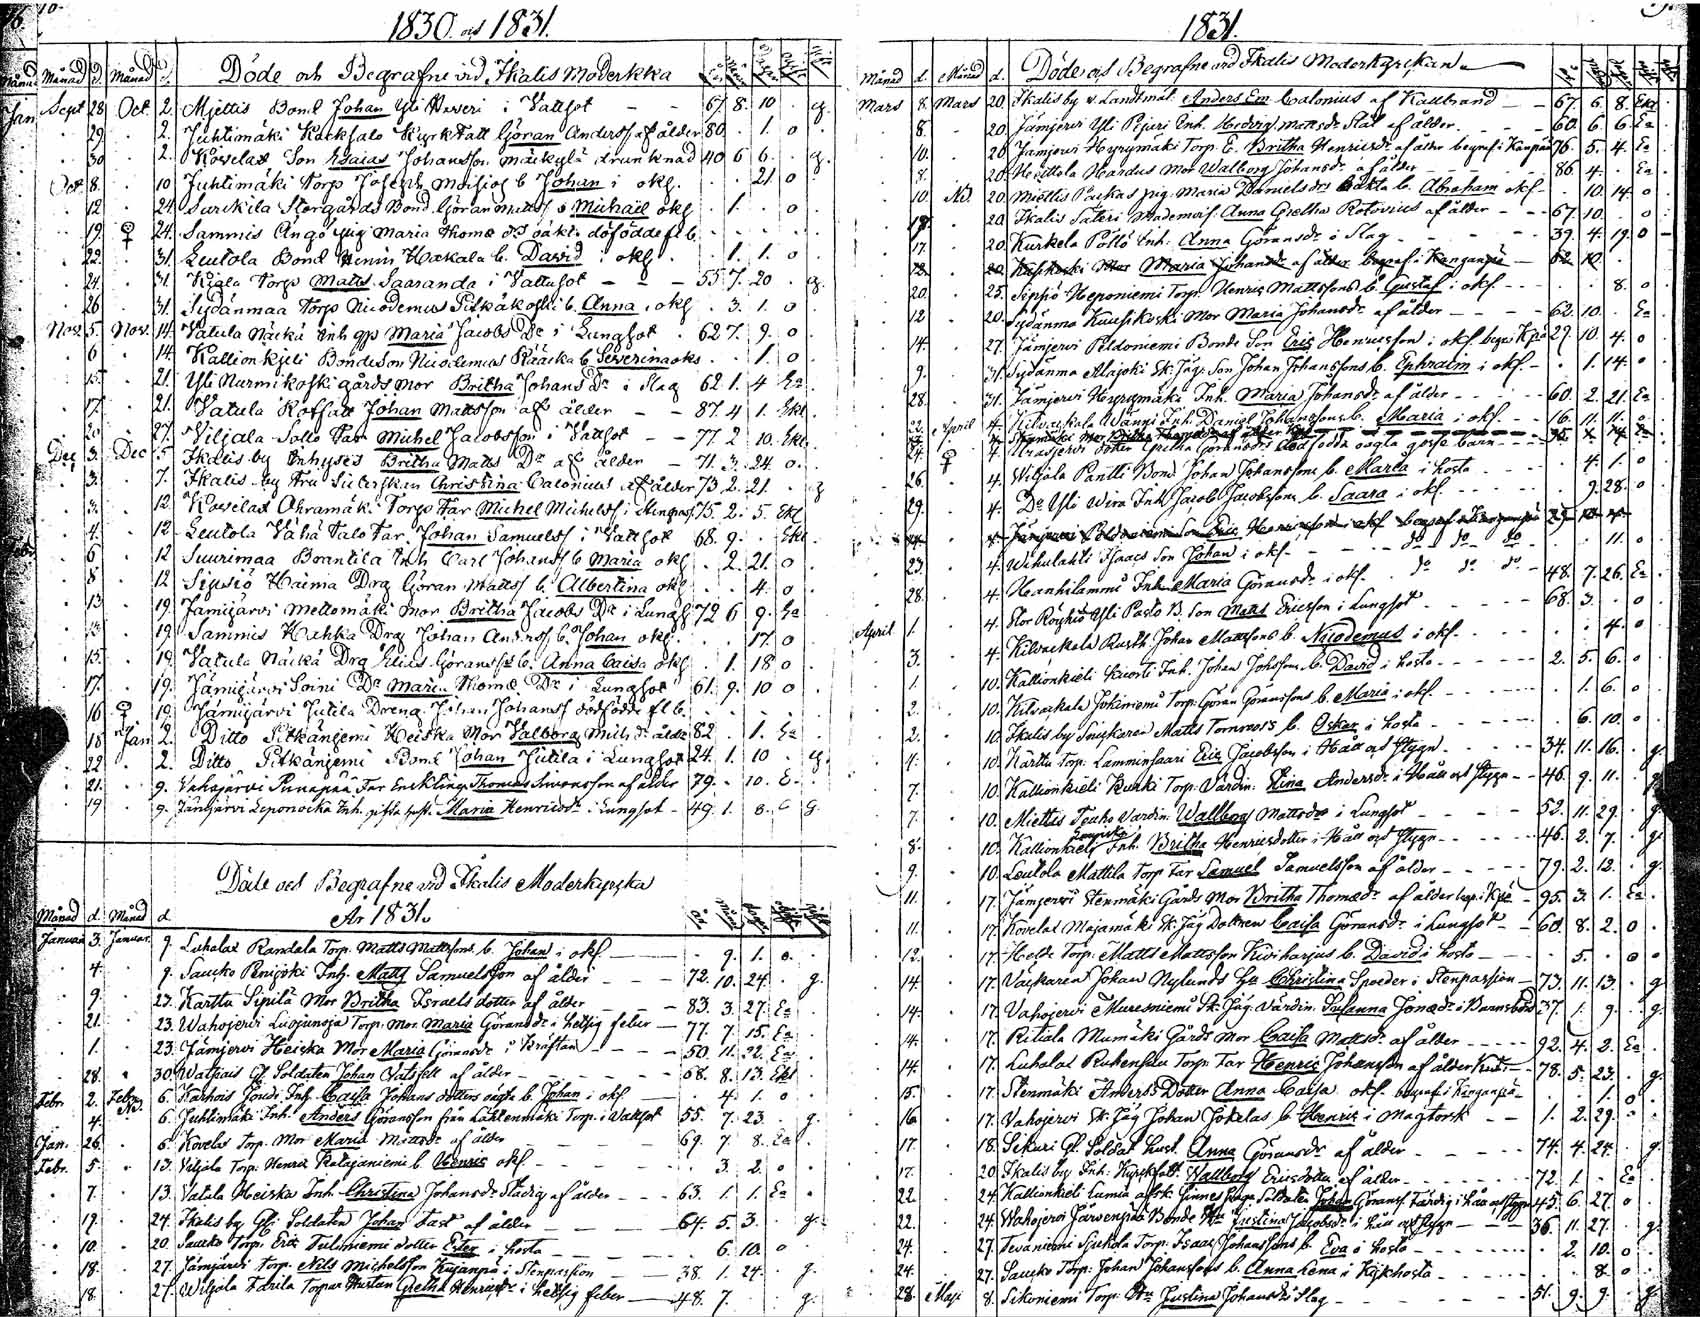 1830 och 1831.
Månad d. Månad d. Döde och Begrafne vid Ikalis Moderkka
Sept 28 Oct 2. Mjettis Bond Johan Yli Haveri i Vattsot 67. 8. 10 g.
29. 2. Juhtimäki Göran Anderss. af ålder 80. 1. o
30 2. Kovelax Son Esaias Johansson Mäckylä drunknad 40 6 6. g.
Oct. 8. 10 Juhtimäki Torp Joseph b. Johan i okg. 21 o
12 24 Surckila Storgårds Bond Göran Matts. s Michaël okg 1. o
19. 24. Sammis Ango pig Maria Thomæ dr oäkt. dödfödde fl b.
22. 31. Leutola Bond Henric Hakala b. David i okg. 1. 1. o
24. 31. Kjala Torp Matts Saaranda i Vattusot 55 7. 20 g.
26 31. Sydänmaa Torp Nicodemus Pitkäkoski b. Anna i okg 3. 1. o
Nov. 5. Nov. 14. Vatula Näckä Inh Maria Jacobs Dr i Lungsot 62 7. 9. o
6 14. Kallionkjeli Bonde Son Nicodemus Rääcka b. Severina okg 1. o
15. 21. Yli Nurmikoski gårds mor Britha Johans Dr i Slag 62. 1. 4 Ea
17. 21. Vatula Johan Mattsson af ålder 87. 4 1. Ekl.
20 27. Viljala Sollo Far Michel Jacobsson i Vattsot 77. 2 10. Ekl.
Dec 3. Dec 5 Ikalis by Inhyses Britha Matts Dr af ålder 71. 3. 24 o.
3. 7. Ikalis by Fru Christina Calonius af ålder 73 2. 21. g
3. 12. Kovelax Ahramäki Torps Far Michel Michelss. i Stenpass. 75. 2. 5. Ekl
4. 12 Leutola Vähä Talo Far Johan Samuelss i Vattsot 68. 9. Ekl
6 12 Suurimaa Brantila Inh Carl Johanss b Maria okg 2. 21. o
8 12 Sipsiö Haima Drg Göran Mattss b. Albertina okg 4. o
13 19 Jämijärvi Mettomäki Mor Britha Jacobs Dr i Lungs 72 6 9. Ea
13 19 Sammis Kahka Drg Johan Anderss b. Johan okg. 17. o
15. 19. Vatula Näckä Drg Elias Göranss b. Anna Caisa okg 1. 18 o
17. 19. Jämijärvi Soini Dr Maria Thomæ Dr i Lungsot 61. 9. 10 o
16 19. Jämijärvi Jutila Dreng Johan Johanss dödfödde fl b.
18 Jan 2. Ditto Pitkänjemi Heiska Mor Valborg Mich. dr ålder 82 1. Ea
22 2. Ditto Pitkänjemi Bond Johan Jutila i Lungsot 24. 1. 10 g.
21. 9. Vahajärvi Punapää Far Enklinge Thomas Simonsson af ålder 79. 10. E
19 9. Jämijärvi Leponocka Inh. gifta hust. Maria Henricsdr i Lungsot 49. 1. 8. g.
Döde och Begrafne vid Ikalis Moderkyrcka
År 1831.
Månad d. Månad d
Januari 3. Januar. 9. Luhalax Randala Torp. Matts Mattssons b. Johan i okg 9. 1. o.
4. 9. Saucko Penisöki Inh. Matts Samuelsson af ålder 72. 10. 24. g.
9. 23. Karttu Sipilä Mor Britha Israels dotter af ålder 83. 3. 27. Ea
21. 23. Wahojervi Luojunoja Torp. Mor. Maria Göransdr i hetsig feber 77. 7. 15. Ea
1. 23. Jämjervi Heiska Mor Maria Göransdr i kräftan 50. 11. 22. Ea
28. 30. Watsais Gl. Soldaten Johan Vatsfelt af ålder 68. 8. 13. Ekl
Febr. 2. Febr. 6. Karhois Jordi Inh. Caisa Johans dotters oägta b. Johan i okg 4. 1. o
4. 6. Juhtimäki Inh. Anders Göransson från Lähtenmäki Torp. i Vattsot 55. 7. 23. g.
Jan. 26. 6. Kovelax Torp. Mor Maria Mattsdr af ålder 69. 7 8. Ea
Febr. 5. 13. Viljala Torp. Henric Katajaniemi b. Henric okg. 3. 2. o
7. 13. Vatula Heiska Inh. Christina Johansdr Stadig af ålder 63. 1. 1. Ea
19. 24. Ikalis by Gl. Soldaten Johan Fast af ålder 64. 5. 3. g.
10. 20. Saucko Torp. Eric Tulimiemi dotter Ester i hosta 6. 10. o
18. 27. Jämjärvi Torp. Nils Michelsson Kujanpä i Stenpassion 38. 1. 24. g.
18. 27. Wiljala Fabrila Torpar Hustun Gretha Henricsdr i hetsig feber 48. 7. g.
1831.
Månad d. Månad d. Döde och Begrafne vid Ikalis Moderkyrckan
Mars 8. Mars 20. Ikalis by v. Landtmät. Anders Em. Calonius af Kallbrand 67. 6. 8. Ekl
8. 20. Jämjervi Yli Pijari Inh. Hedvig Mattsdr Stål af ålder 60. 6. 6. Ea
10. 20. Jämjervi Hyrymäki Torp. E. Britha Henricsdr af ålder begraf. i Kanganpää 76. 5. 4. Ea
8. 20. Heittola Hardus Mor Walborg Johansdr af ålder 86 4. Ea
10. Nd. 20. Miettis Packas pig. Maria Danielsdrs oäkta b. Abraham okg 10. 14. o
19. 20. Ikalis Säteri Mademois. Anna Gretha Rotovius af ålder 67. 10. o
17. 20. Kurkela Pöllö Inh. Anna Göransdr i Slag 39. 4. 19. o
18. 20. Kuhkoski Mor Maria Johansdr af ålder begraf. i Kanganpää 62 10.
20. 25. Sippö Heponiemi Torp. Henric Mattssons b. Gustaf i okg 8. o
12 20. Sydänma Kuusikoski Mor Maria Johansdr af ålder 62. 10. Ea
14. 27. Jämjervi Peldoniemi Bonde Son Eric Henricsson i okg. begr. i Kpä 29. 10. 4. o
9. 31. Sydänma Alajoki Sk. Jäg. Son Johan Johanssons b. Ephraim i okg. 1. 14. o
28. 31. Jämjervi Hyrymäki Inh. Maria Johansdr af ålder 60. 2. 21. Ea
22. April 4. Kilvackala Wänni Inh. Daniel Johanssons b. Maria i okg 16. 11. 11. o
24. 4. Krasjervi dotter Gretha Göransdrs dödfödda oägta gosse barn
26. 4. Wiljala Pantti Bond. Johan Johanssons b. Maria i hosta 4. 1. o
29. 4. Do Yli Wira Inh. Jacob Jacobssons b. Saara i okg. 9. 28. o
24. 4. Jämjervi Peldoniemi Son Eric Henricsson i okg begraf. i Kanganpää 29. 10. 4.
23. 4. Wihulahti Isaacs Son Johan i okg. do do do 11. o
28. 4. Hanhilammi Inh. Maria Göransdr i okg. do do do 48. 7. 26. Ea
April 1. 4. Stor Röyhiö Yli Paslo B. Son Matts Ericsson i Lungsot 68. 3. o
3. 4. Kilvackala Rusth. Johan Mattssons b. Nicodemus i okg. 4. o
1. 10. Kallionkieli Kuorti Inh. Johan Johssons b. David i hosta 2. 5. 6. o
2. 10. Kilvackala Jokiniemi Torp. Göran Göranssons b. Maria i okg. 1. 6. o
2. 10. Ikalis by Snickaren Matts Tornrors b. Oskar i hosta 6. 10. o
4. 10. Kärttu Torp. Lamminsaari Eric Jacobsson i Håll och Stygn 34. 11. 16. g
7. 10. Kallionkieli Kurki Torp. Värdin. Stina Andersdr i Håll och Stygn 46. 9. 11. g
7. 10. Miettis Touho Värdin. Wallborg Mattsdr i Lungsot 52. 11. 29. g
8. 10. Kallionkieli Inh. Britha Henricsdotter i Håll och Stygn 46. 2. 7. g
9. 10. Leutola Mattila Torp. Far Samuel Samuelsson af ålder 79. 2. 12. g.
11. 17. Jämjervi Stenmäki Gårds Mor Britha Thomædr af ålder begr. i Kpä 95. 3. 1. Ea
11. 17. Kovelax Majamäki Sk. Jäg. Dottren Caisa Göransdr i Lungsot 60. 8. 2. o
12. 17. Heitt. Torp. Matts Mattsson Kiviharjus b. David i hosta 5. o o
14. 17. Väckaren Johan Nylunds Hu Christina Spoeder i Stenpassion 73. 11. 13. g
14. 17. Vahojervi Muresniemi Sk. Jäg. Värdin Susanna Jonædr i Barnsbörd 37. 1. 9. g
14. 17. Ritiala Mumäki Gårds Mor Caisa Mattsdr af ålder 92. 4. 2. Ea
14. 17. Luhalax Ruhensuu Torp. Far Henric Johansson af ålder 78. 5. 23. g.
15. 17. Stenmäki Anders Dotter Anna Caisa okg. begraf. i Kanganpää 1. o
16. 17. Vahojervi Sk. Jäg. Johan Jokelas b. Henric i Magtorsk 1. 2. 29. o
17. 18. Sikuri Gl. Soldat hust. Anna Göransdr af ålder 74. 4. 24. g.
17. 20. Ikalis by Inh. Wallborg Ericsdotter af ålder 72. 1. Ea
22. 24. Kallionkieli Lumia afsk. Finnes Soldaten Johan Görans. Färdig i Håll och Stygn 45. 6. 27. o
22. 24. Wahojervi Järvenpää Bonde Hu Justina Jacobsdr i Håll och Stygn 36. 11. 27. g.
24. 27. Tevaniemi Sjukola Torp. Isaac Johanssons b. Eva i hosta 2. 10. o
24. 27. Saucko Torp. Johan Johanssons b. Anna Lena i Kikhosta 8. o
28. Maji 8. Sikoniemi Torp. Hu Justina Johansdr i Slag 51. 9. 9. g.